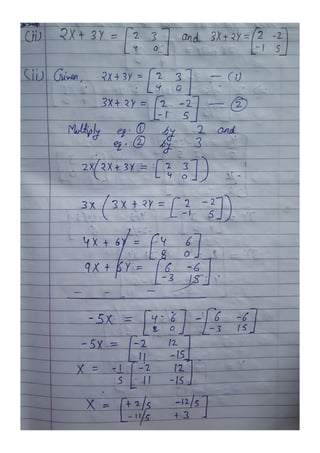 (ii) 2X + 3Y = [2 3 4 0] and 3X + 2Y = [2 -2 -1 5]
(ii) Given, 2X + 3Y = [2 3 4 0] — (1)
3X + 2Y = [2 -2 -1 5] — (2)
Multiply eq. (1) by 2 and
eq. (2) by 3
2x(2X + 3Y = [2 3 4 0])
3x(3X + 2Y = [2 -2 -1 5])
4X + 6Y = [4 6 8 0]
9X + 6Y = [6 -6 -3 15]
- - - -
-5X = [4 6 8 0] - [6 -6 -3 15]
-5X = [-2 12 11 -15]
X = -1/5 [-2 12 11 -15]
X = [+2/5 -12/5 -11/5 +3]